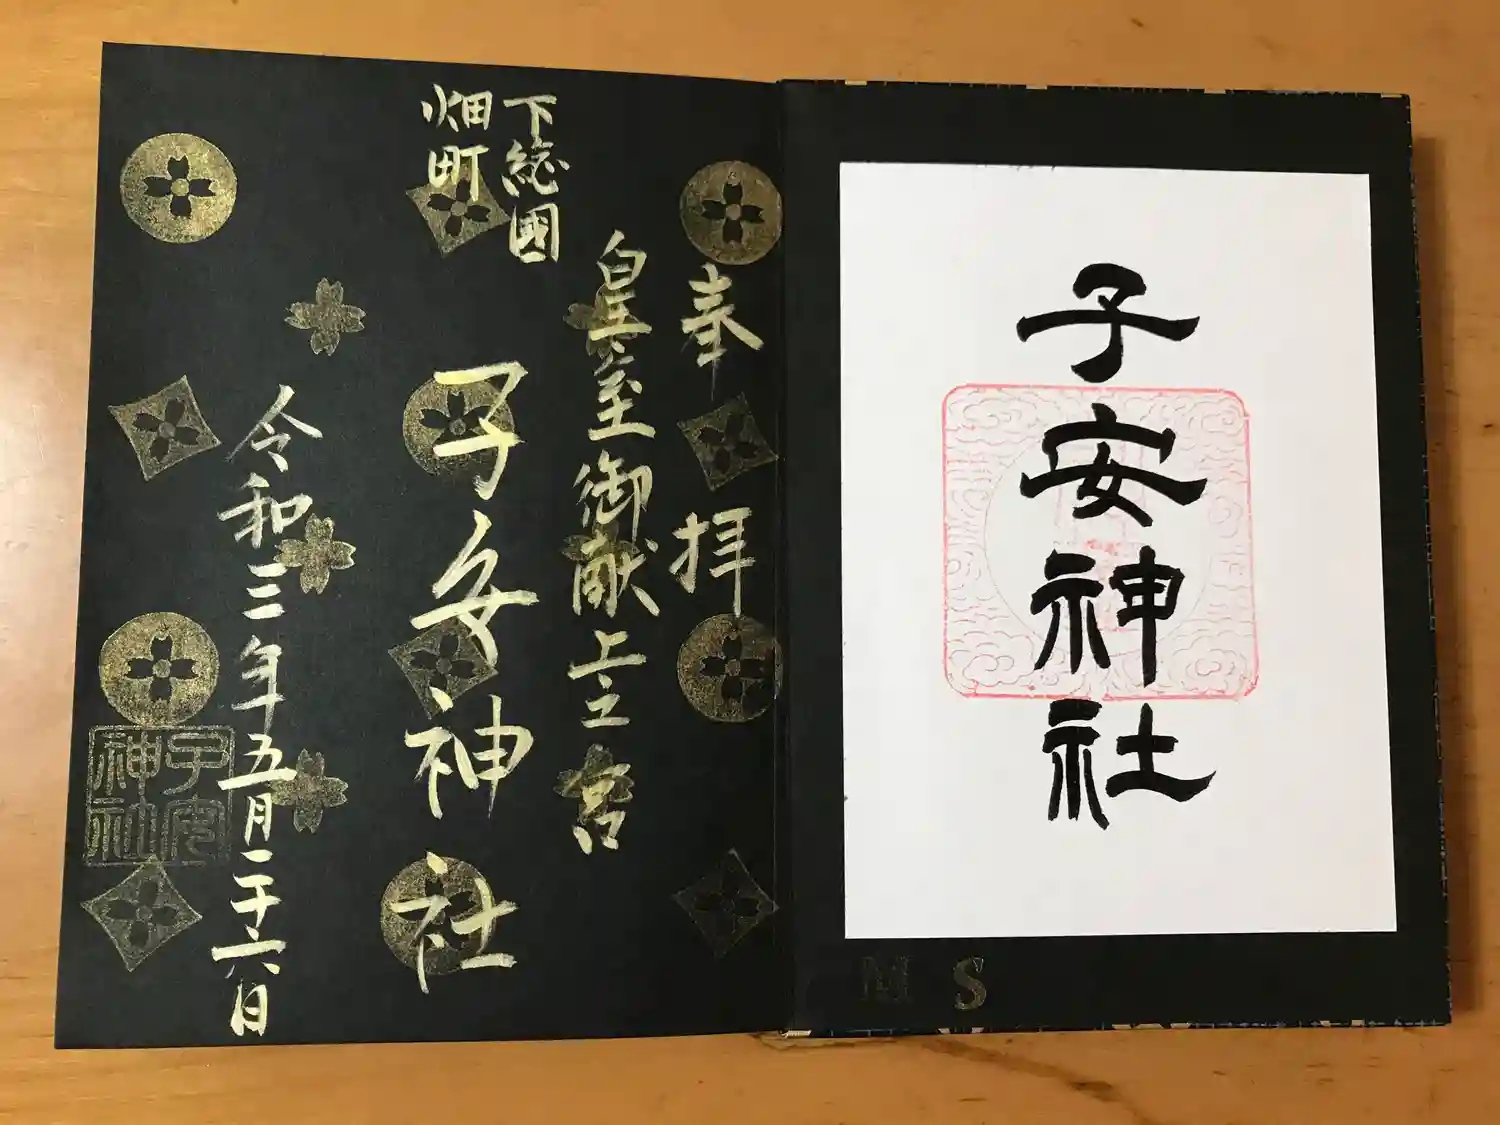 子安神社
M S
奉拝
皇室御献上之宮
下総國
畑町
子安神社
令和三年五月二十六日
子安
神社